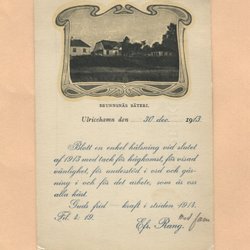 BRUNNSNÄS SÄTERI.
Ulricehamn den 30 dec. 1913.
Blott en enkel hälsning vid slutet
af 1913 med tack för hågkomst, för visad
vänlighet, för understöd i ord och gär-
ning i och för det arbete, som är oss
alla kärt.
Guds frid — kraft i striden 1914.
Fil. 2: 19.
Efr. Rang. med fam